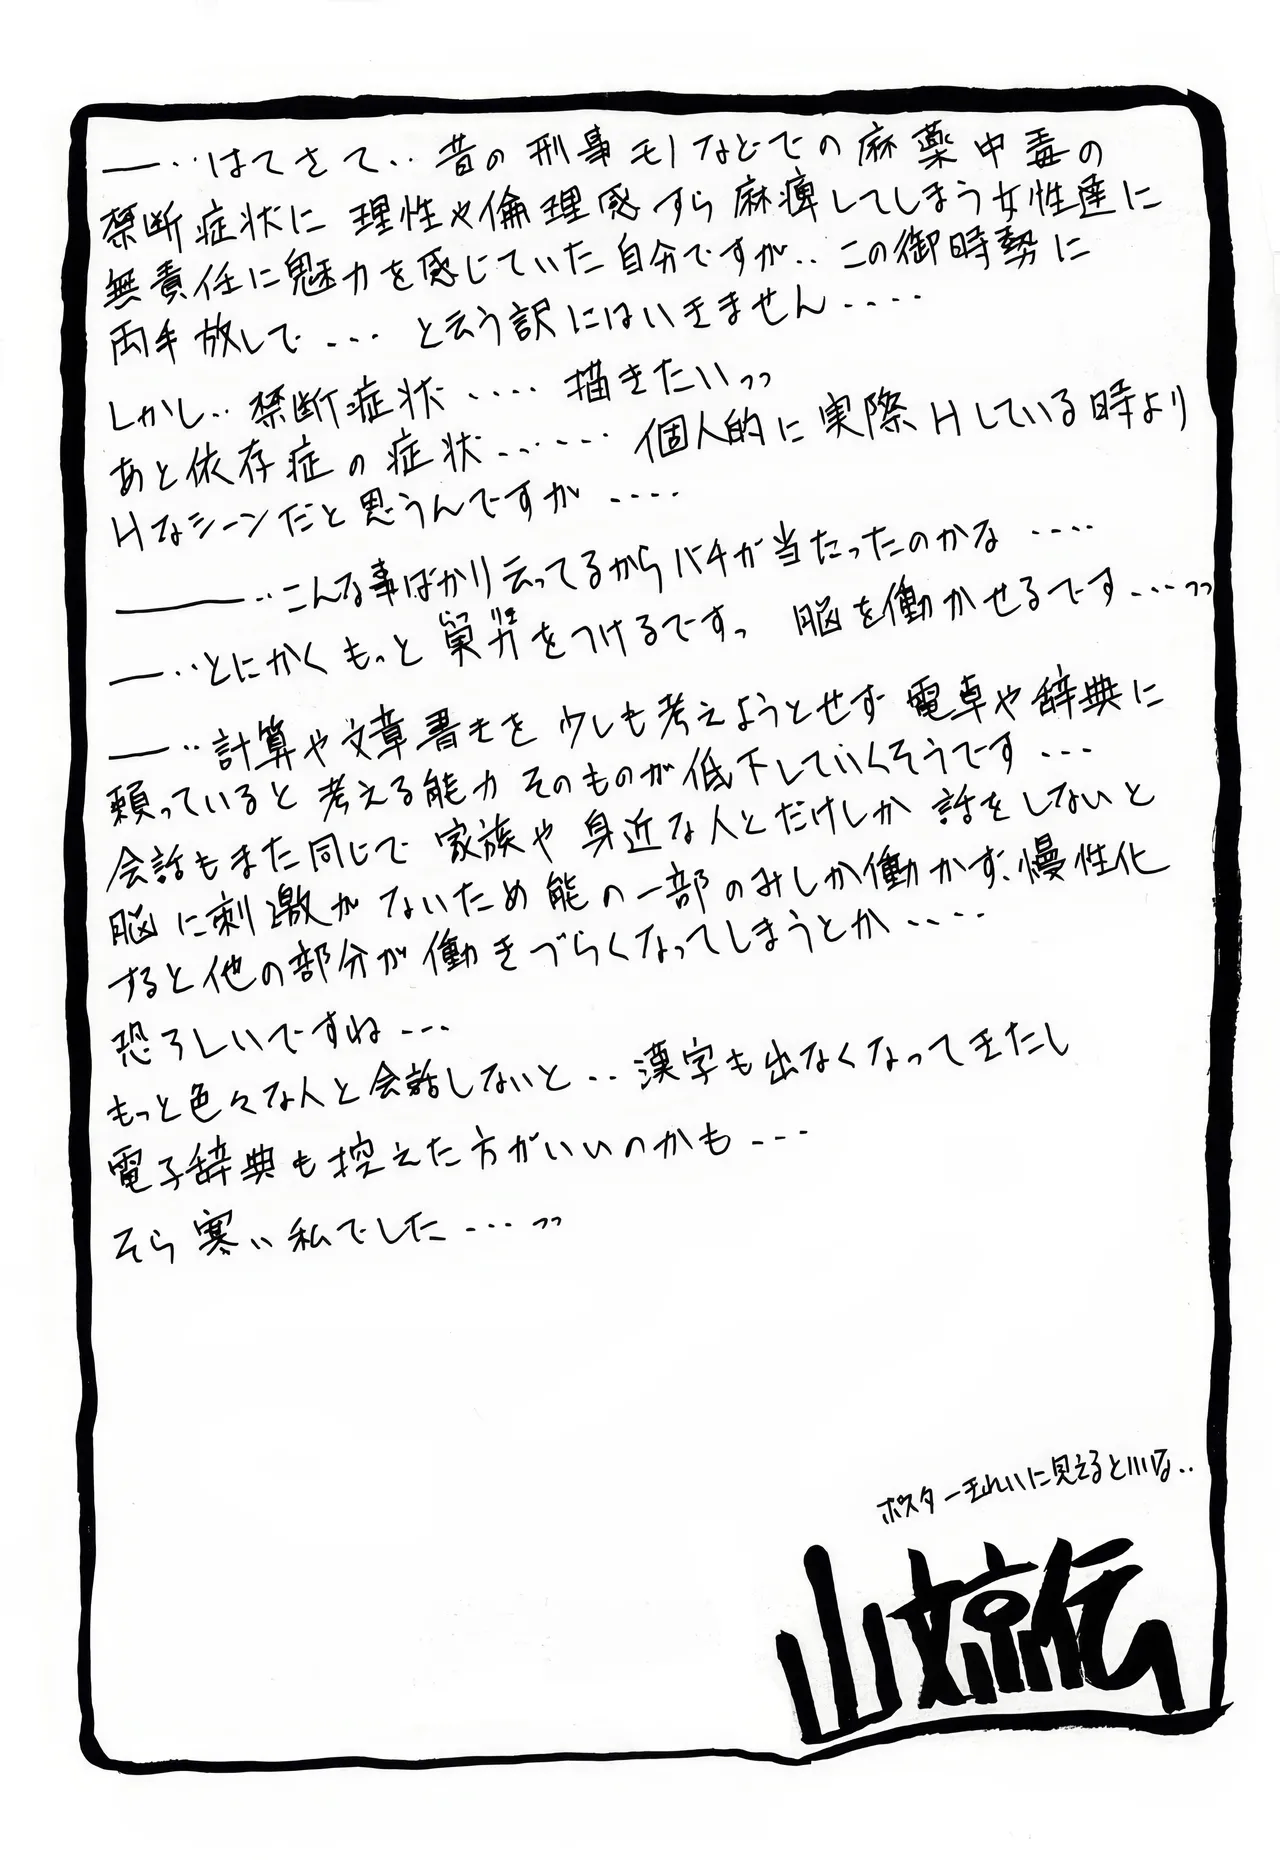 ―‥はてさて‥昔の刑事モノなどでの麻薬中毒の
禁断症状に理性や倫理感すら麻痺してしまう女性達に
無責任に魅力を感じていた自分ですが‥この御時勢に
両手放しで・・・と云う訳にはいきません・・・・
しかし‥禁断症状・・・・描きたいッッ
あと依存症の症状・・・・・・個人的に実際Hしている時より
Hなシーンだと思うんですが・・・・
―――‥こんな事ばかり云ってるからバチが当たったのかな・・・・
―‥とにかくもっとをつけるですっ 脳を働かせるです・・・ッッ
―‥計算や文章書きを少しも考えようとせず電卓や辞典に
頼っていると考える能力そのものが低下していくそうです・・・
会話もまた同じで家族や身近な人とだけしか話をしないと
脳に刺激がないため能の一部のみしか働かず、慢性化
すると他の部分が働きづらくなってしまうとか・・・・
恐ろしいですね・・・
もっと色々な人と会話しないと‥漢字も出なくなってきたし
電子辞典も控えた方がいいのかも・・・
そら寒い私でした・・・ッッ
ポスターきれいに見えるといいな‥